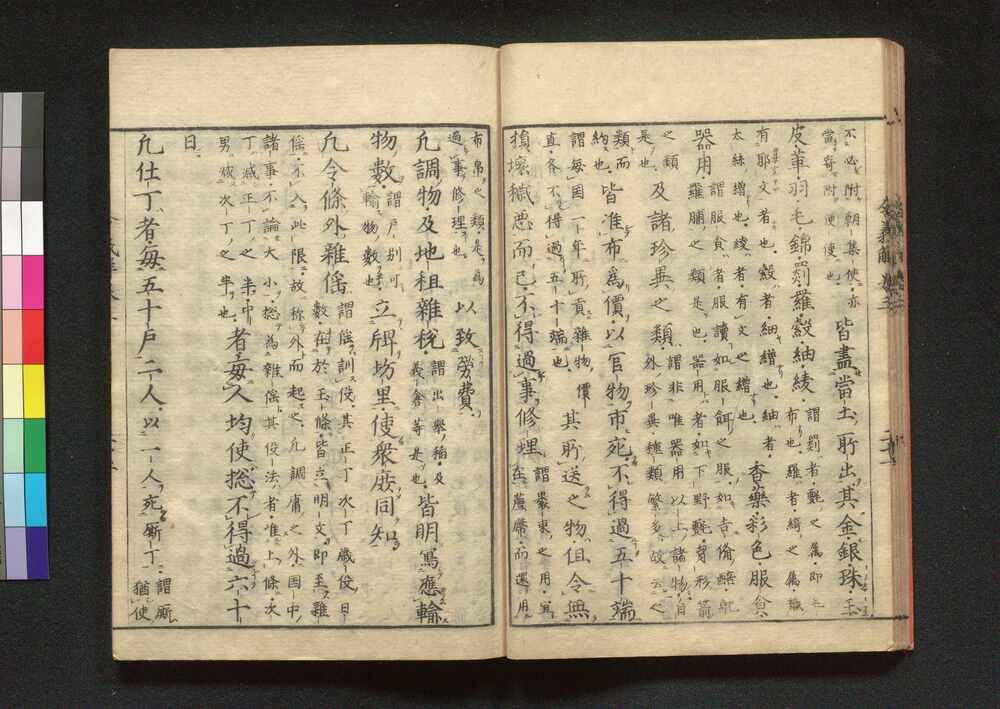 令義解 巻三
不必附朝集使亦
當齊附使也
皆盡當土所出其金銀珠玉
皮革羽毛錦罽羅縠紬綾
謂罽者氈之属即毛
布也羅者緝之属織
有耶文者也縠者細繒也紬者
太絲繒也綾者有文之繒也
香藥彩色服食
器用
謂服食者服讀如服餌之服如吉備醋乾
羅脯之類是也器用者如下野氈脅形箭
之類
是也
及諸珍異之類
謂非唯器用以上諸物自
外珍異種類繁多故云之
類而
約也
皆准布為價以官物市充不得過五十端
謂毎国一年所貢雜物價
直各不得過五十端也
其所送之物但令無
損壊穢悪而已不得過事修理
謂裹束之用宜
在薦席而還用
布帛之類是為
過事修理也
以致労費
凡調物及地租雜税
謂出擧稲及
義倉等是也
皆明寫應輸
物數
謂戸別可
輸物數也
立牌坊里使衆庶同知
凡令條外雜徭
謂徭訓役其正丁次丁歳役日
數在於玉條皆立明文即至雜
徭不入此限故称外而起之凡調庸之外国中
諸事不論大小惣為雜徭其役法者准上條次
丁減正丁之半中
男減次丁之半也
者毎人均使惣不得過六十
日
凡仕丁者毎五十戸二人以一人充廝丁
謂廝
猶使